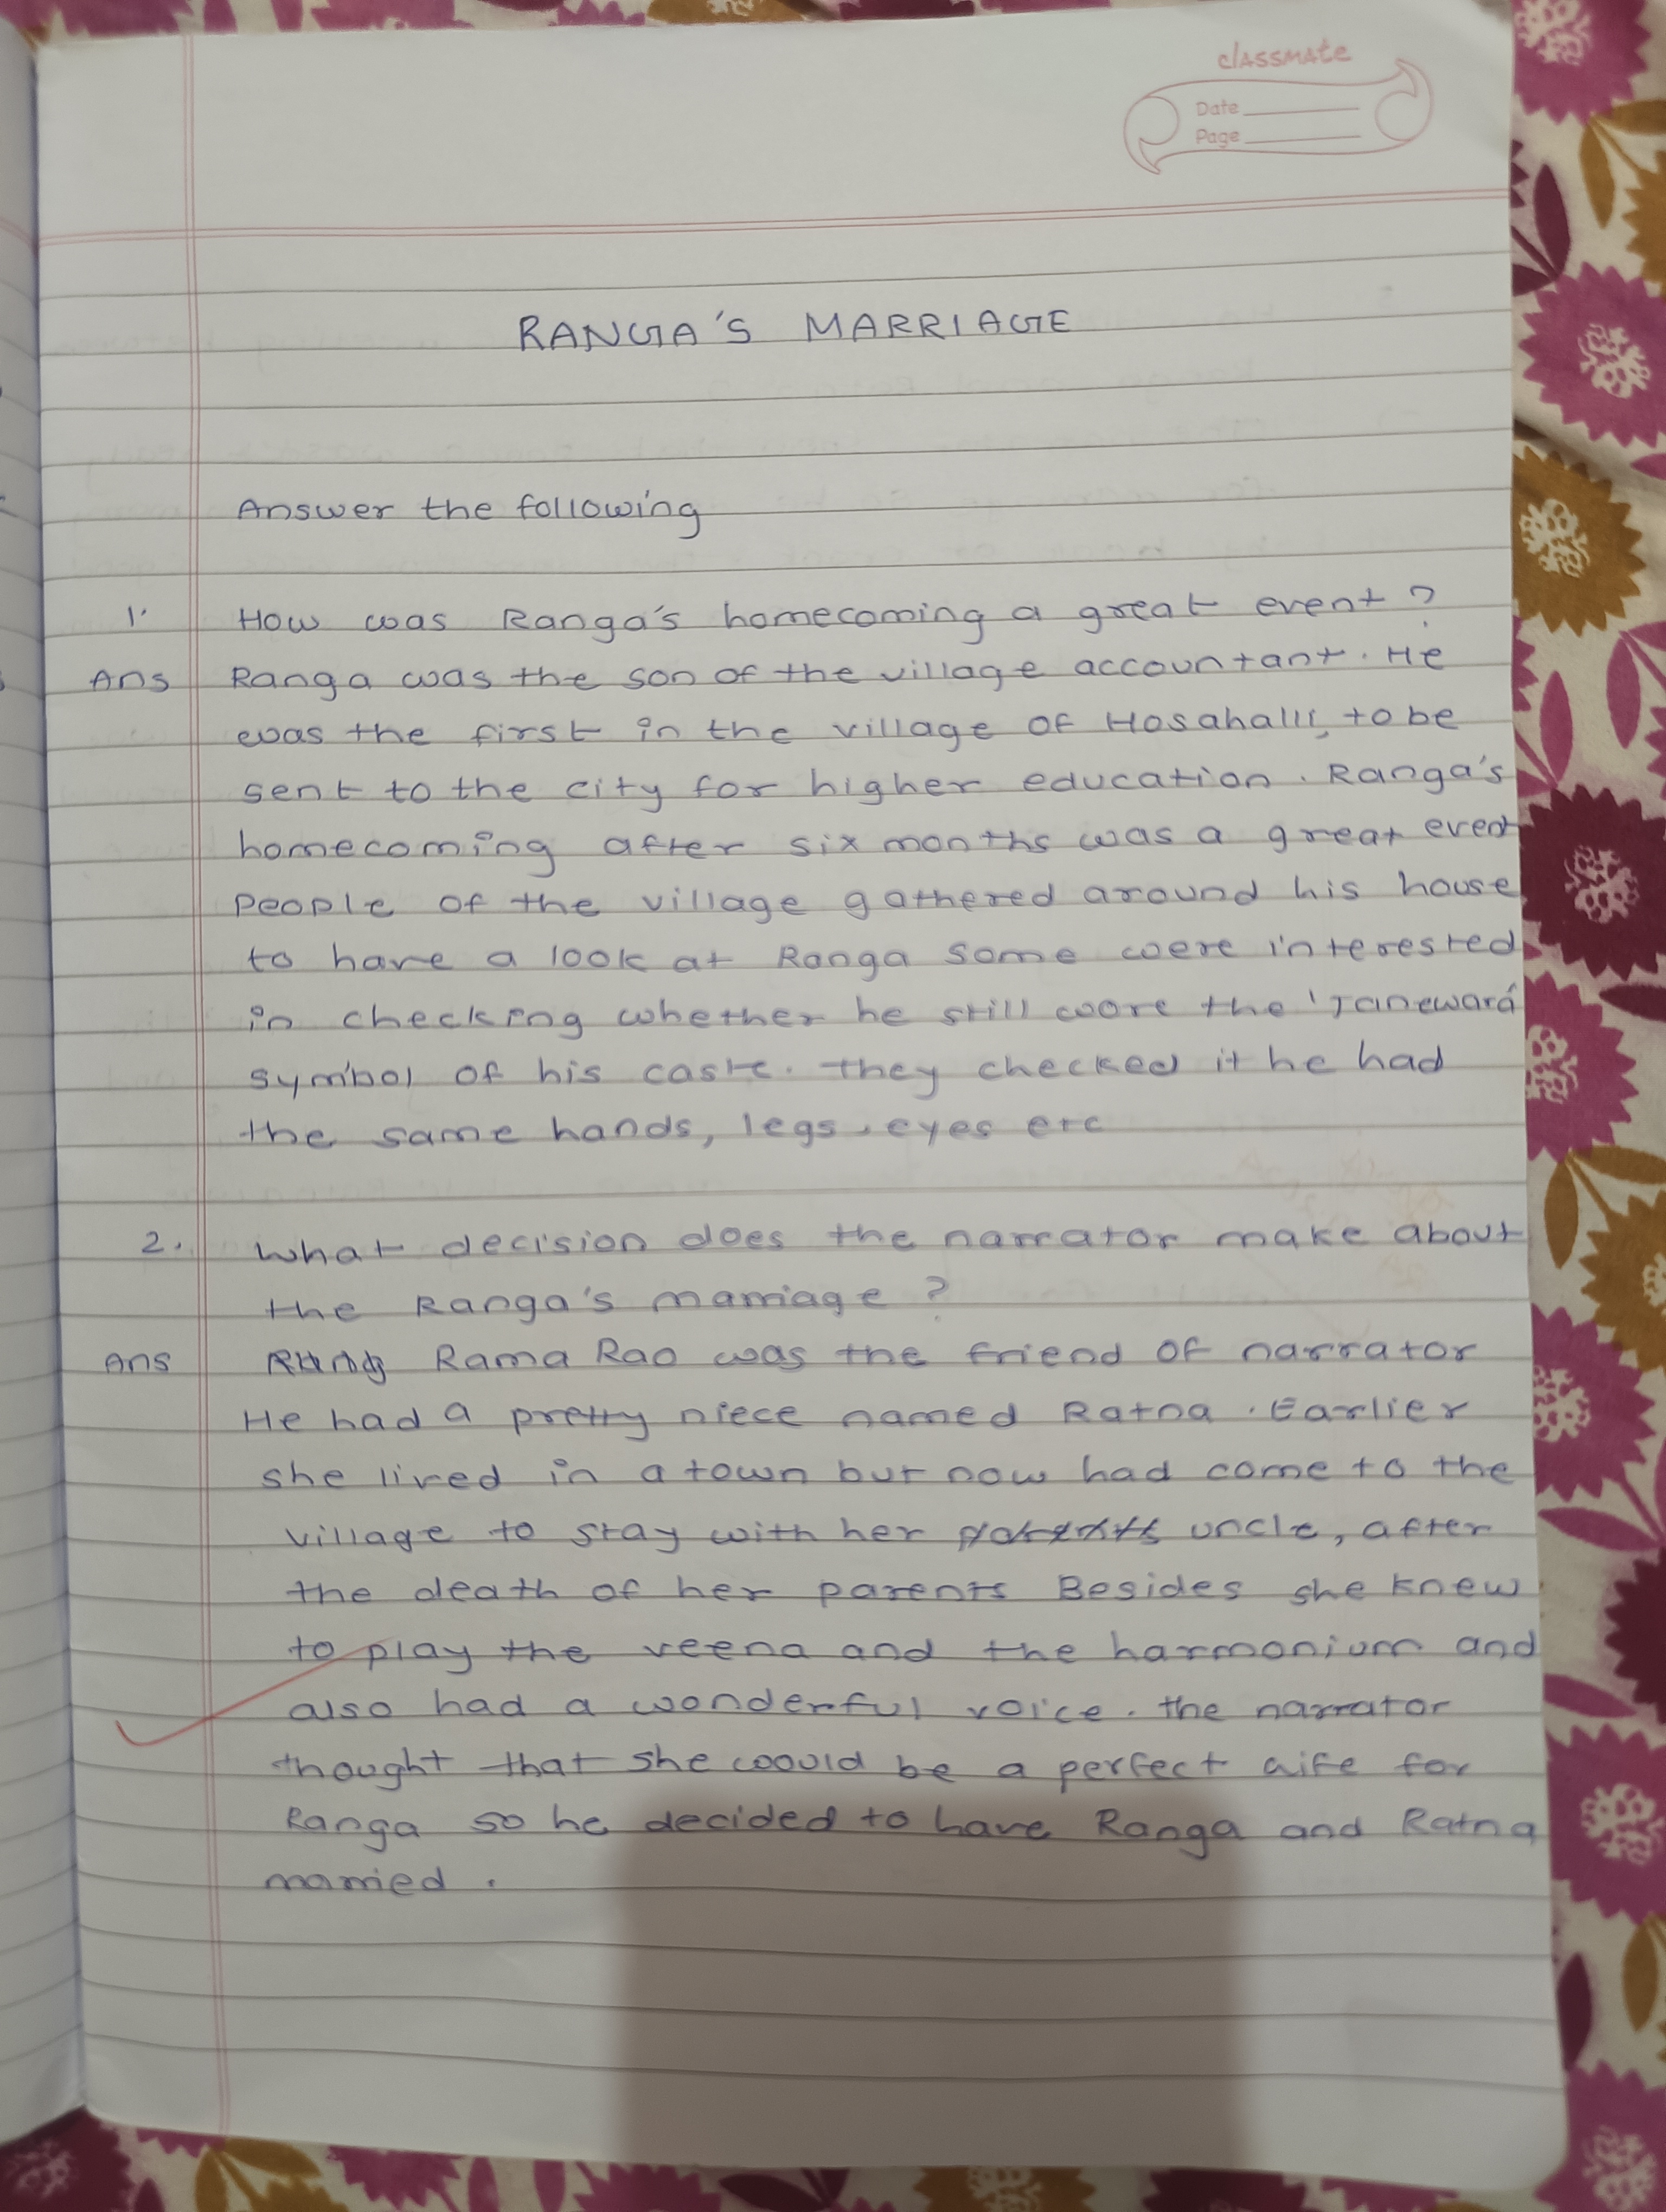 classmate
Date
Page
RANGA'S MARRIAGE
Answer the following
1. How was Ranga's homecoming a great event?
Ans Ranga was the son of the village accountant. He
was the first in the village of Hosahalli, to be
sent to the city for higher education. Ranga's
homecoming after six months was a great event
People of the village gathered around his house
to have a look at Ranga some were interested
in checking whether he still wore the 'Janeward
symbol of his caste. They checked it he had
the same hands, legs, eyes etc
2. What decision does the narrator make about
the Ranga's marriage?
Ans Rama Rao was the friend of narrator
He had a pretty niece named Ratna. Earlier
she lived in a town but now had come to the
village to stay with her parents uncle, after
the death of her parents Besides she knew
to play the veena and the harmonium and
also had a wonderful voice. the narrator
thought that she would be a perfect wife for
Ranga so he decided to have Ranga and Ratna
married.